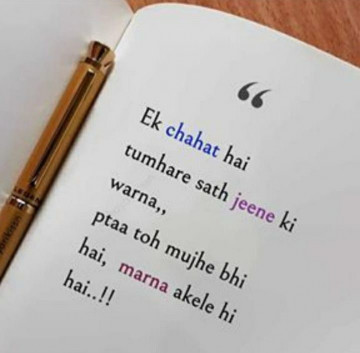 “
Ek chahat hai
tumhare sath jeene ki
warna,,
ptaa toh mujhe bhi
hai, marna akele hi
hai..!!